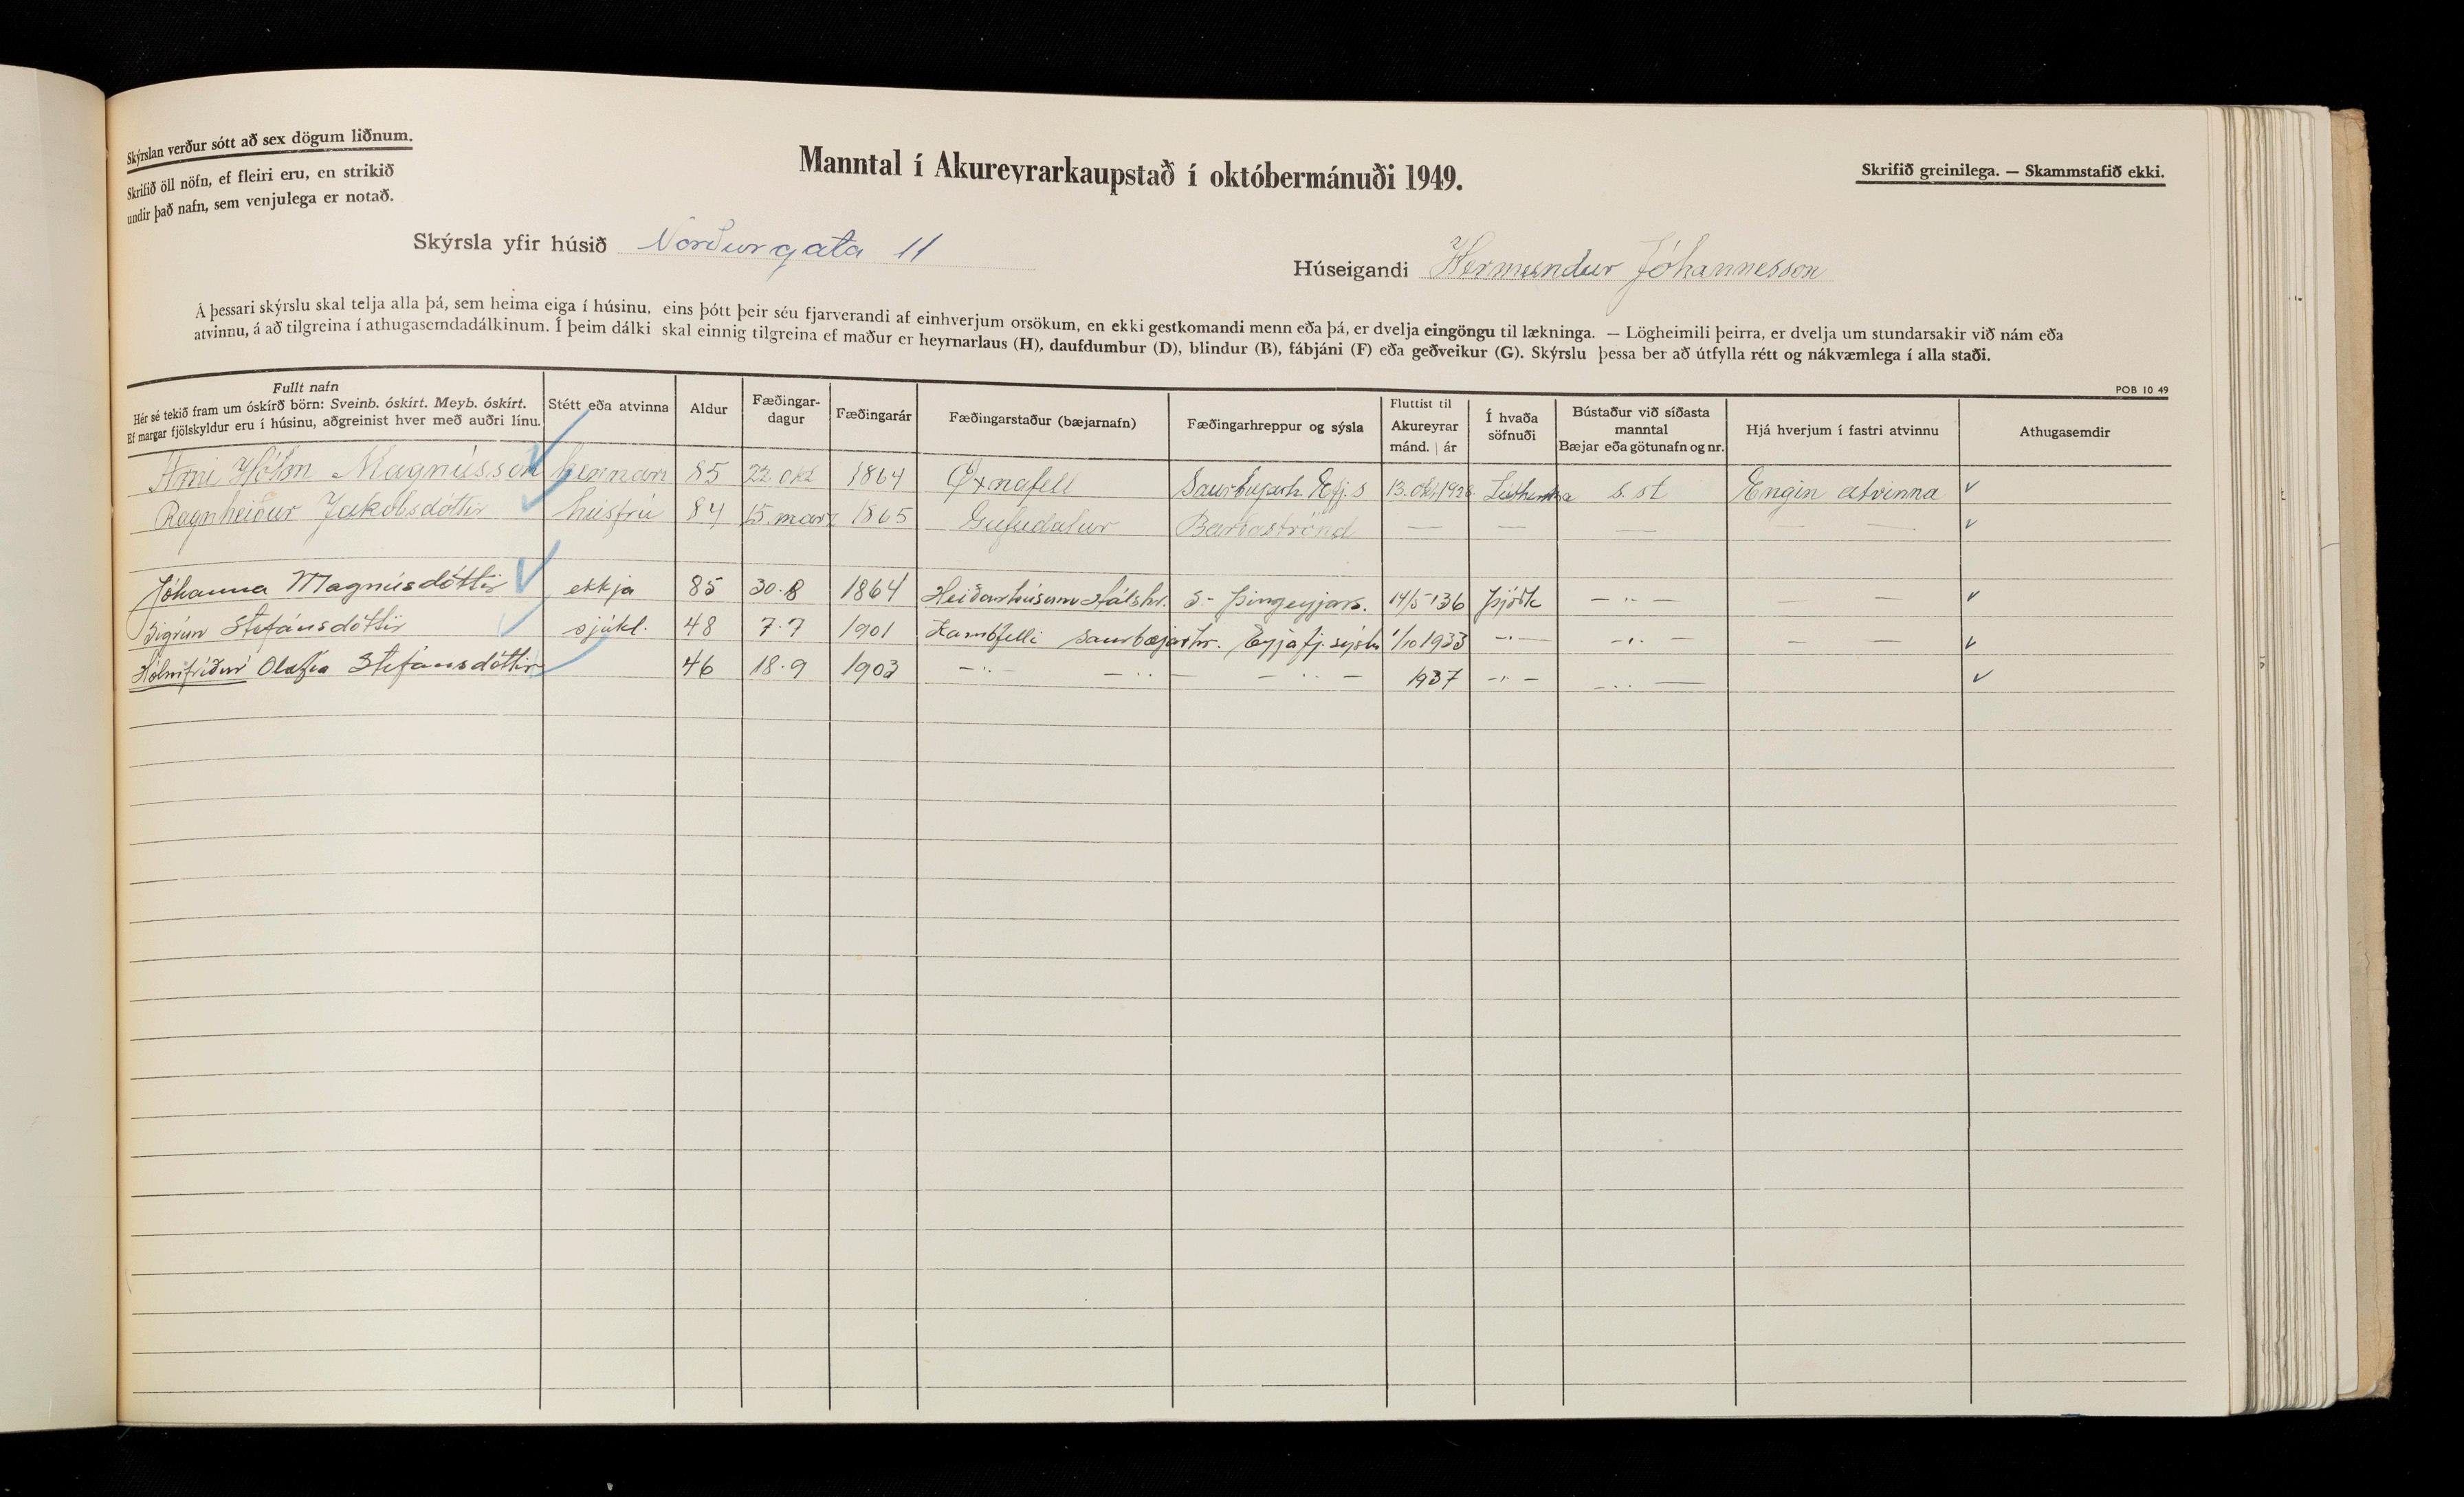 Skýrslan verður sótt að sex dögum liðnum.
Skrifið öll nöfn, ef fleiri eru, en strikið
undir það nafn, sem venjulega er notað.
Manntal í Akureyrarkaupstað í októbermánuði 1949.
Skrifið greinilega. — Skammstafið ekki.
Skýrsla yfir húsið Norðurgata 11
Húseigandi Hermundur Jóhannesson
Á þessari skýrslu skal telja alla þá, sem heima eiga í húsinu, eins þótt þeir séu fjarverandi af einhverjum orsökum, en ekki gestkomandi menn eða þá, er dvelja eingöngu til lækninga. — Lögheimili þeirra, er dvelja um stundarsakir við nám eða
atvinnu, á að tilgreina í athugasemdadálkinum. Í þeim dálki skal einnig tilgreina ef maður er heyrnarlaus (H), daufdumbur (D), blindur (B), fábjáni (F) eða geðveikur (G). Skýrslu þessa ber að útfylla rétt og nákvæmlega í alla staði.
POB 10 49
Fullt nafn
Hér sé tekið fram um óskírð börn: Sveinb. óskírt. Meyb. óskírt.
Ef margar fjölskyldur eru í húsinu, aðgreinist hver með auðri línu.
Stétt eða atvinna
Aldur
Fæðingar-
dagur
Fæðingarár
Fæðingarstaður (bæjarnafn)
Fæðingarhreppur og sýsla
Fluttist til
Akureyrar
mánd. | ár
Í hvaða
söfnuði
Bústaður við síðasta
manntal
Bæjar eða götunafn og nr.
Hjá hverjum í fastri atvinnu
Athugasemdir
Árni Hólm Magnússon kennari 85 22. okt 1864 Öxnafell Saurbæjarh. Efj.s 13. okt 1928 s. st Engin atvinna
Ragnheiður Jakobsdóttir húsfrú 84 15. marz 1865 Gufudalur Barðaströnd — — — — —
Jóhanna Magnúsdóttir ekkja 85 30.8 1864 Heiðarhúsum Hálshr. S-Þingeyjars. 14/5 '36 Þjóðk — " — — —
Sigrún Stefánsdóttir sjúkl. 48 7.7 1901 Kambfelli Saurbæjarhr. Eyjafj.sýslu 1/10 1933 — " — — " — — —
Hólmfríður Olafía Stefánsdóttir 46 18.9 1903 — " — — " — — " — 1937 — " — — " —